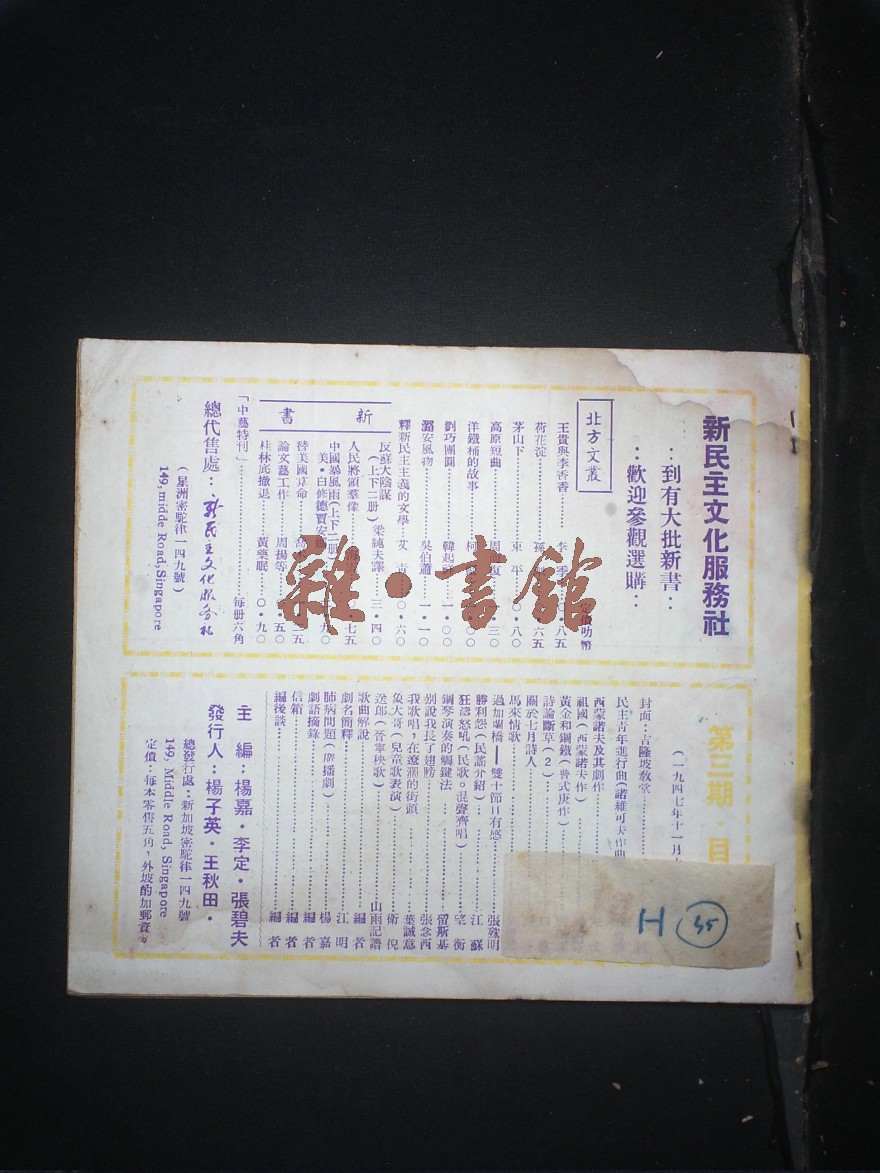 新民主文化服務社
：到有大批新書：
：歡迎參觀選購：
北方文叢
叻幣
王貴與李香香 李季 〇・八五
荷花淀 孫 六五
茅山下 東平 〇・八〇
高原短曲 周 三〇
洋鐵桶的故事 柯
劉巧團圓 韓起 一・〇〇
潞安風物 吳伯簫 一・一〇
釋新民主主義的文學 艾青 〇・六〇
新書
反蘇大陰謀（上下二册） 梁純夫譯 三・四〇
人民將領羣像 七五
中國暴風雨（上下二册）
美・白修德賈安 九〇
替美國算命 喬 五
論文藝工作 周揚等 五〇
桂林底撤退 黃藥眠 〇・九〇
「中藝特刊」 每册六角
總代售處：新民主文化服务社
（星洲密駝律一四九號）
149, midde Road, Singapore
第三期・目
（一九四七年十一月
封面：吉隆坡教堂
民主青年進行曲（諾維可夫作曲
西蒙諾夫及其劇作
祖國（西蒙諾夫作）
黃金和鋼鐵（普式庚作）
詩論斷草（2）
關於七月詩人
馬來情歌
過加蘭橋——雙十節日有感 張殊明
勝利怨（民謠介紹） 江蘇
狂濤怒吼（民歌。混聲齊唱） 空衡
鋼琴演奏的觸鍵法 留斯基
別說我長了翅膀 張念西
我歌唱，在遼濶的街頭 葉誠意
象大哥（兒童歌表演） 衛倪
送郎（晉寧秧歌） 山雨記譜
歌曲解說 編者
劇名簡釋 江明
肺病問題（廣播劇） 楊嘉
劇語摘錄 編者
信箱 編者
編後談 編者
主編：楊嘉・李定・張碧夫
發行人：楊子英・王秋田・
總發行處：新加坡密駝律一四九號
149, Middle Road, Singapore
定價：每本零售五角，外坡酌加郵資。
H 45
雜・書館